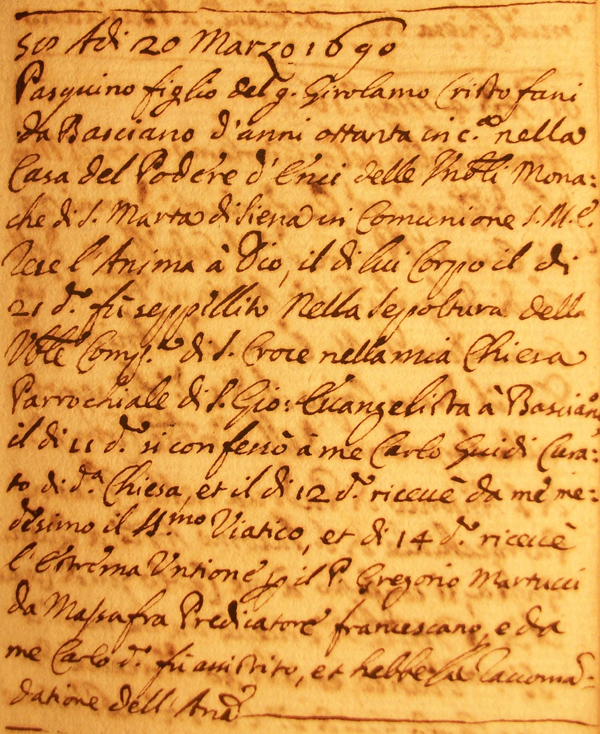 Adi 20 Marzo 1690
Pasquino figlio del q. Girolamo Cristofani
da Basciano d'anni ottanta in c.ª nella
Casa del Podere d'Enci delle Mona:
che di S. Marta di Siena in Comunione S. M. E.
Rese l'Anima à Dio, il di lui Corpo il di
21 d.º fù seppillito Nella Sepoltura della
Vble Comp.ª di S. Croce nella mia Chiesa
Parrochiale di S. Gio: Evangelista à Basciano,
il di 11 d.º si confessò à me Carlo Guidi Cura:
to di d.ª Chiesa, et il di 12 d.º ricevè da me me:
desimo il SS.mo Viatico, et di 14 d.º ricevè
l'Estrema Untione p il P. Gregorio Martucci
da Massafra Predicatore francescano, e da
me Carlo d.º fù assistito, et hebbe la Raccoman:
datione dell'Anã